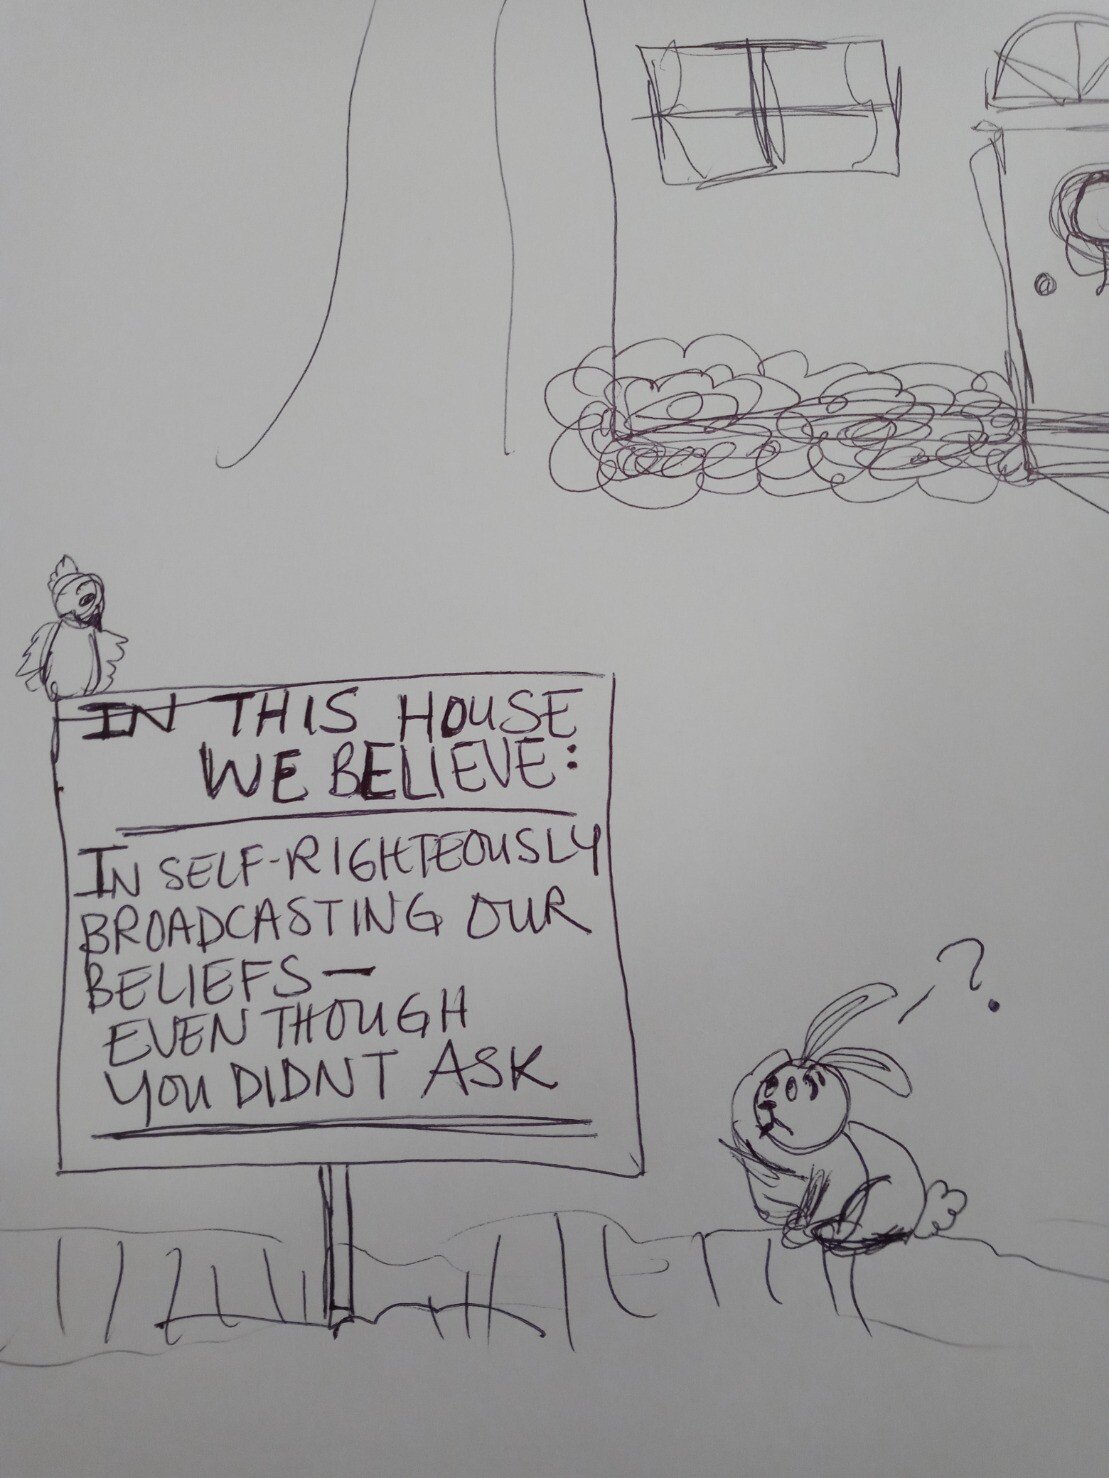 IN THIS HOUSE
WE BELIEVE:
IN SELF-RIGHTEOUSLY
BROADCASTING OUR
BELIEFS—
EVEN THOUGH
YOU DIDNT ASK
?